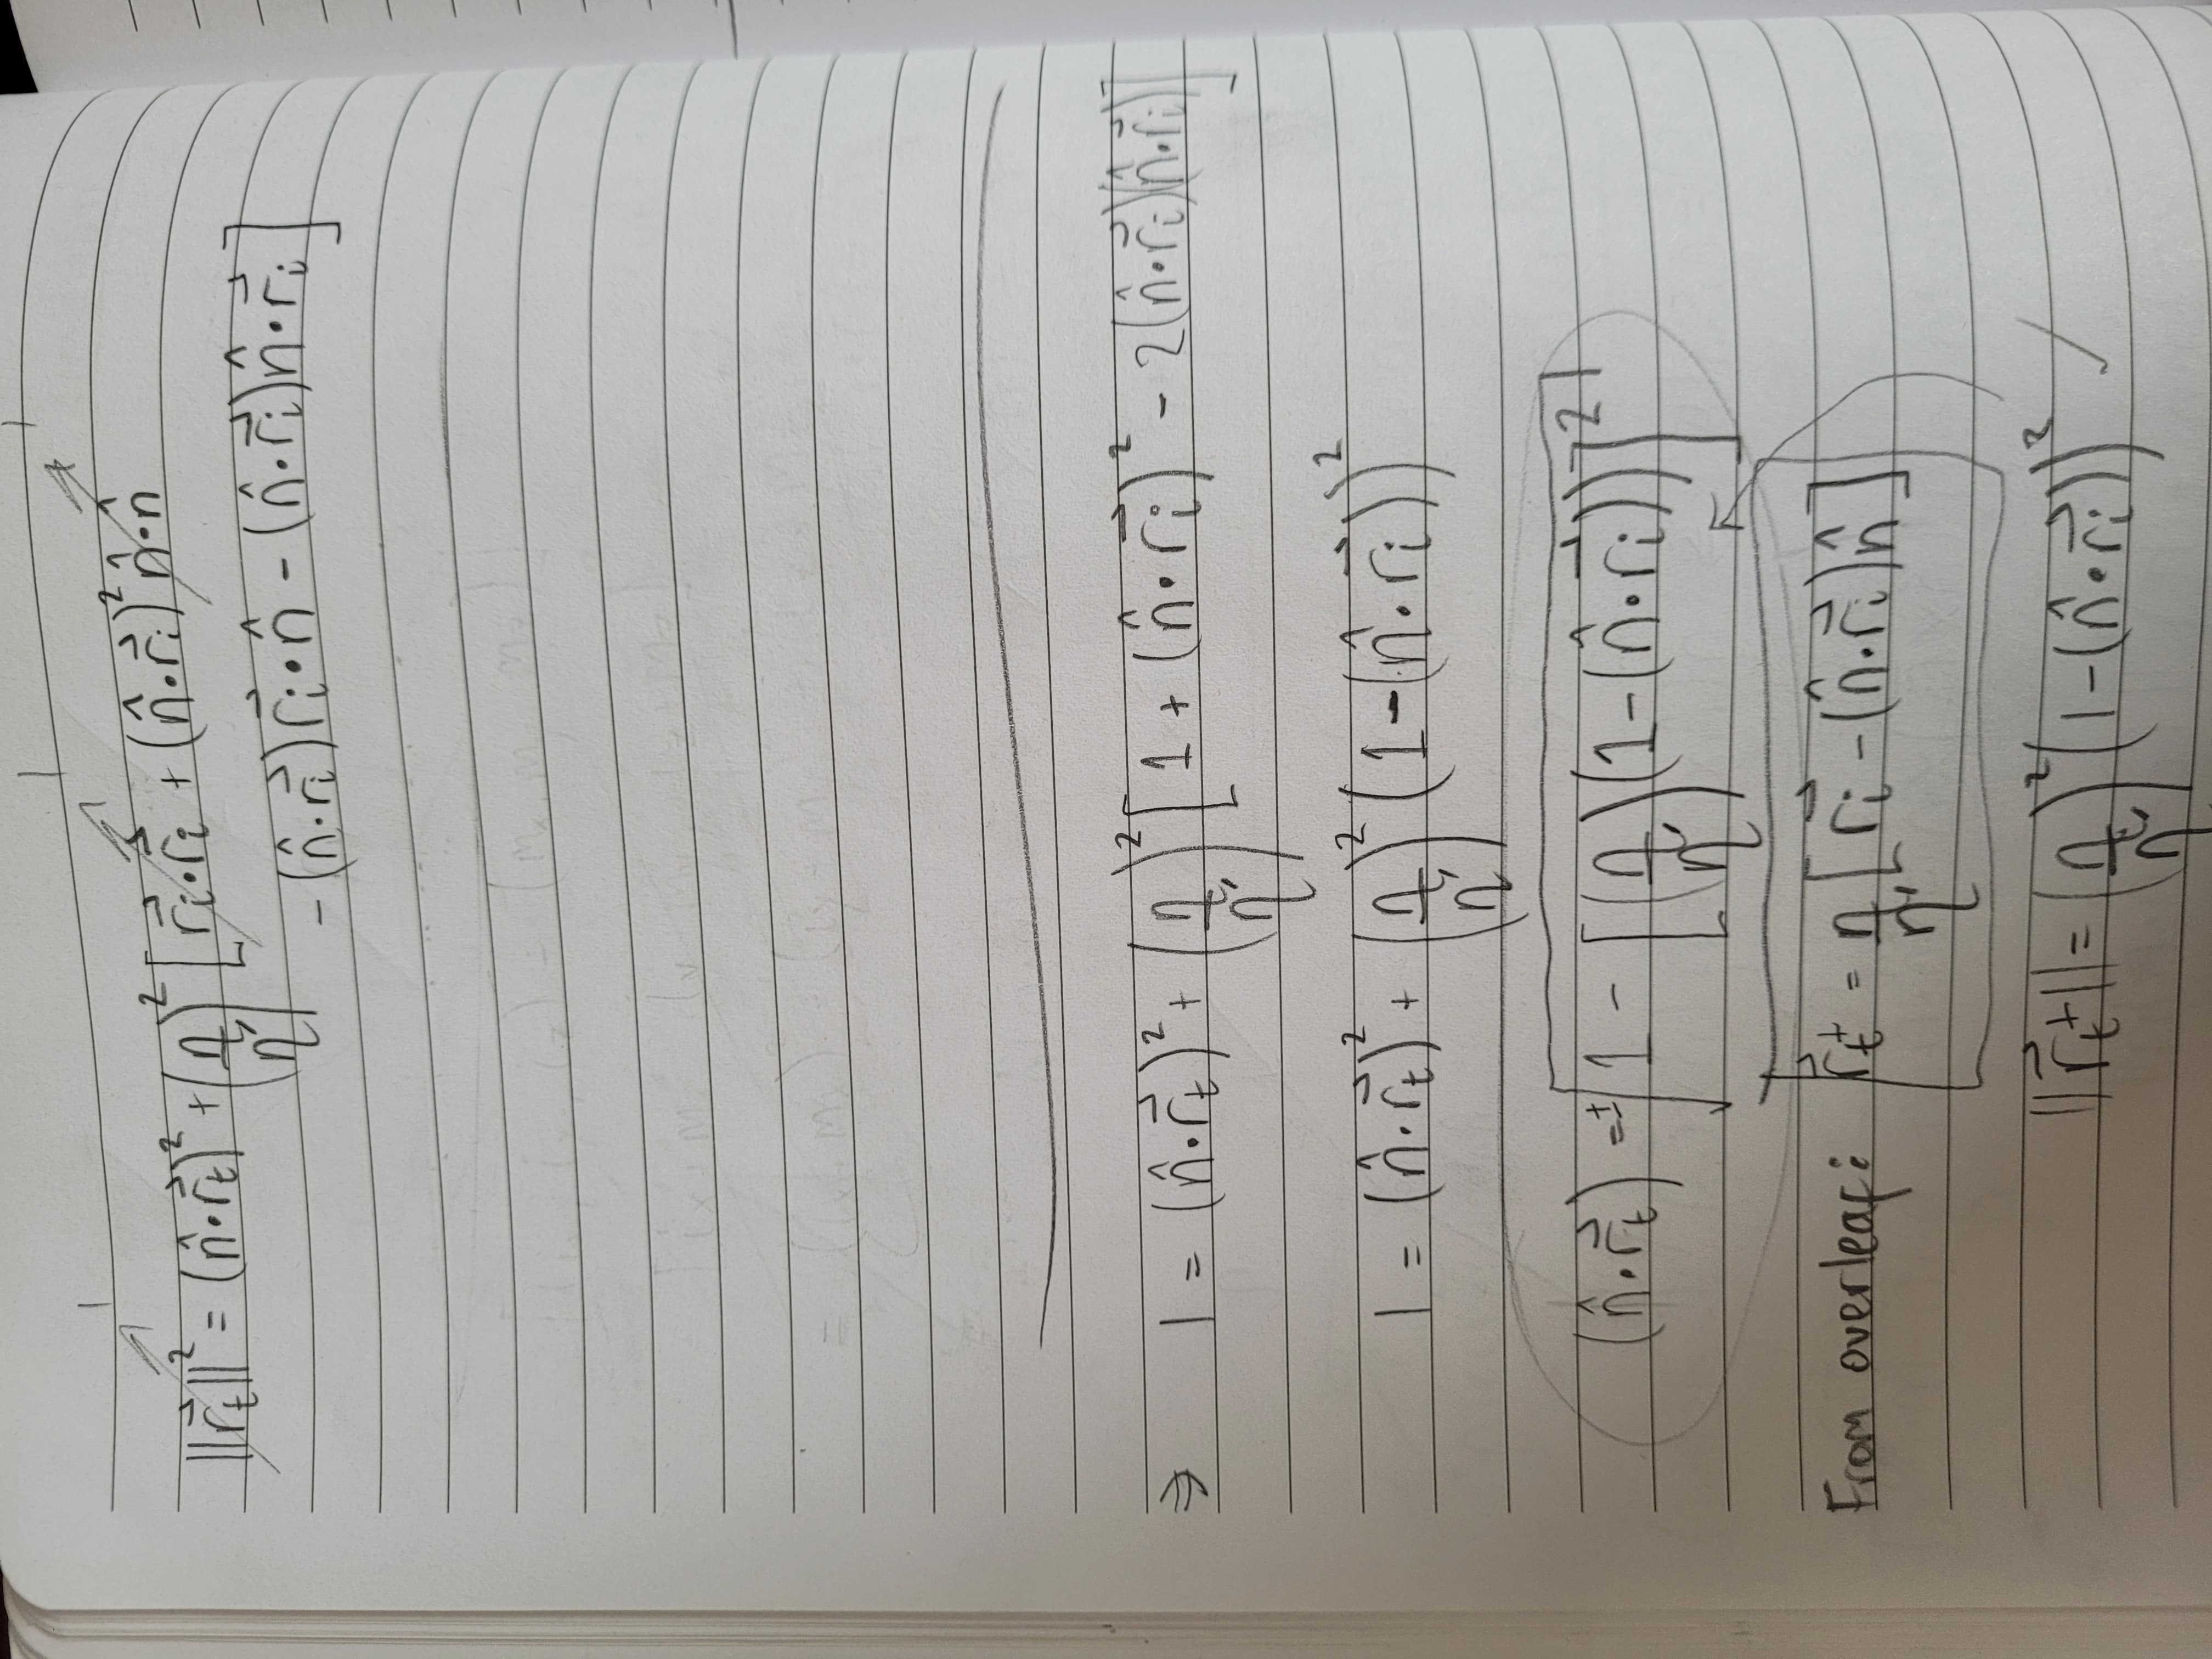 1 1 1
||r⃗_t||² = (n̂·r⃗_t)² + (η/η')² [r⃗_i·r⃗_i + (n̂·r⃗_i)² n̂·n̂
- (n̂·r⃗_i) r⃗_i·n̂ - (n̂·r⃗_i) n̂·r⃗_i]
⇒ 1 = (n̂·r⃗_t)² + (η/η')² [1 + (n̂·r⃗_i)² - 2(n̂·r⃗_i)(n̂·r⃗_i)]
1 = (n̂·r⃗_t)² + (η/η')² (1-(n̂·r⃗_i))²
(n̂·r⃗_t) = ±√(1 - [(η/η')(1-(n̂·r⃗_i))]²)
From overleaf: r⃗_t^⊥ = η/η' [r⃗_i - (n̂·r⃗_i)n̂]
||r⃗_t^⊥|| = (η/η')² (1-(n̂·r⃗_i))² ✓